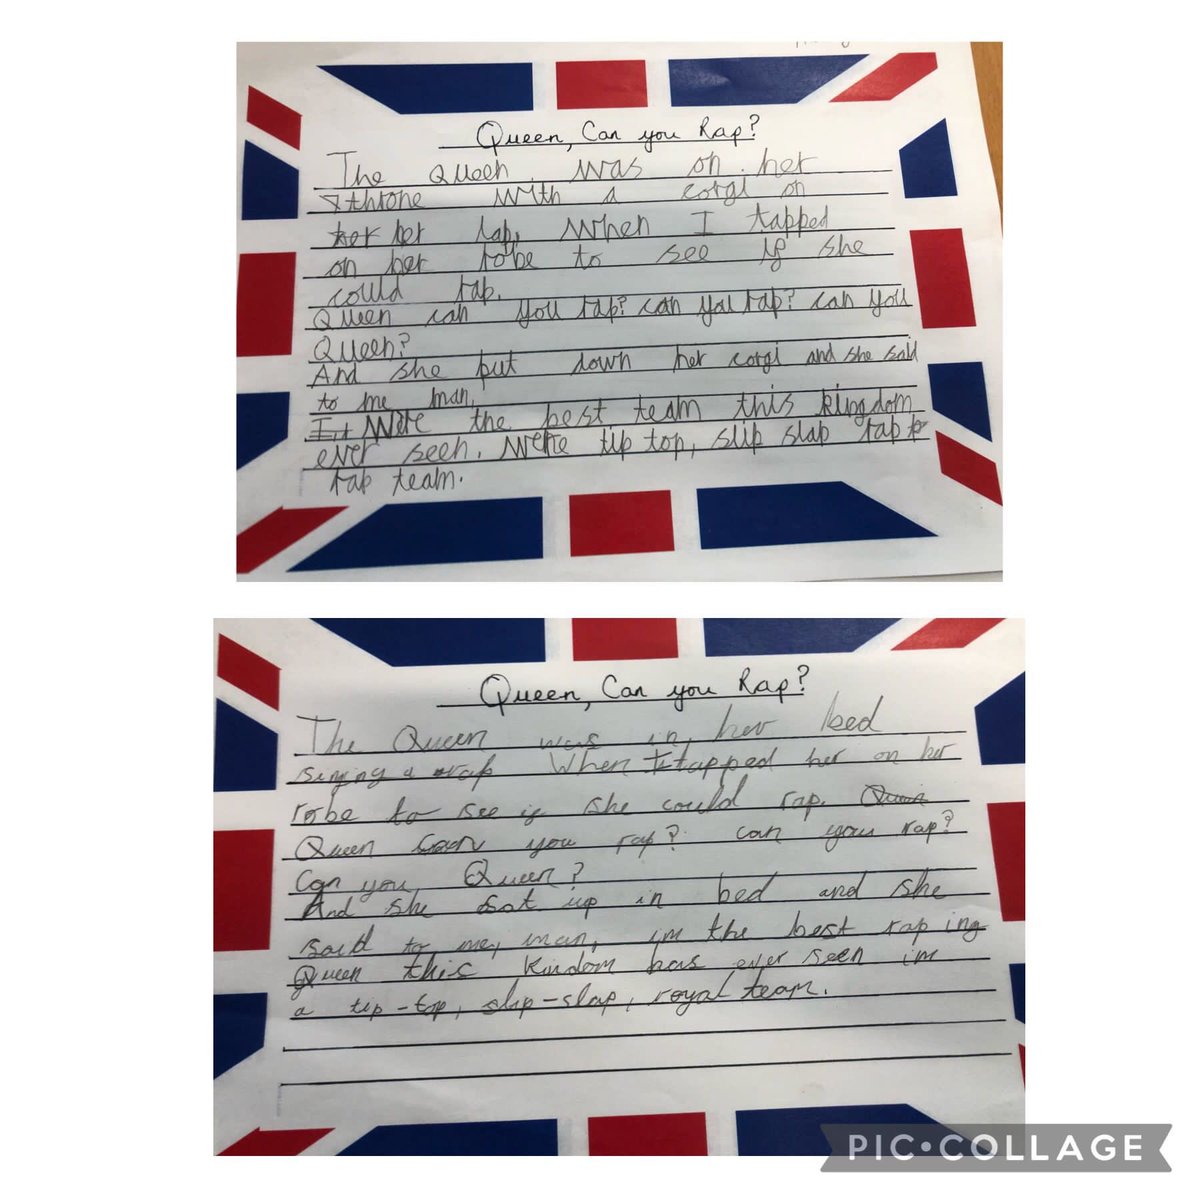 Queen, Can you Rap?
The Queen was on her
throne with a corgi on
her her lap, When I tapped
on her robe to see if she
could rap.
Queen can you rap? can you rap? can you
Queen?
And she put down her corgi and she said
to me man,
Were the best team this kingdom
ever seen. Were tip top, slip slap rap
rap team.
Queen, Can you Rap?
The Queen was in her bed
singing a rap When I tapped her on her
robe to see if she could rap. Queen
Queen can you rap? can you rap?
Can you, Queen?
And she sat up in bed and she
said to me, man, im the best raping
Queen this Kindom has ever seen im
a tip-top, slip-slap, royal team.
PIC•COLLAGE